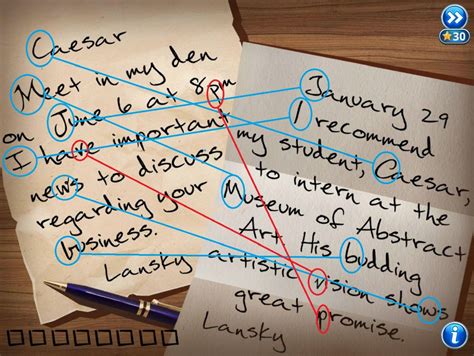 30
Caesar
Meet in my den
on June 6 at 8pm
I have important
news to discuss
regarding your
business.
Lansky
January 29
I recommend
my student, Caesar,
to intern at the
Museum of Abstract
Art. His budding
artistic vision shows
great promise.
Lansky
i